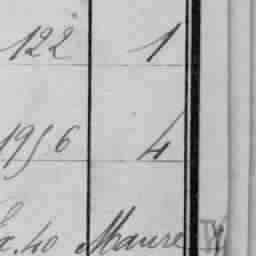 122 1
1956 4
40 Maure